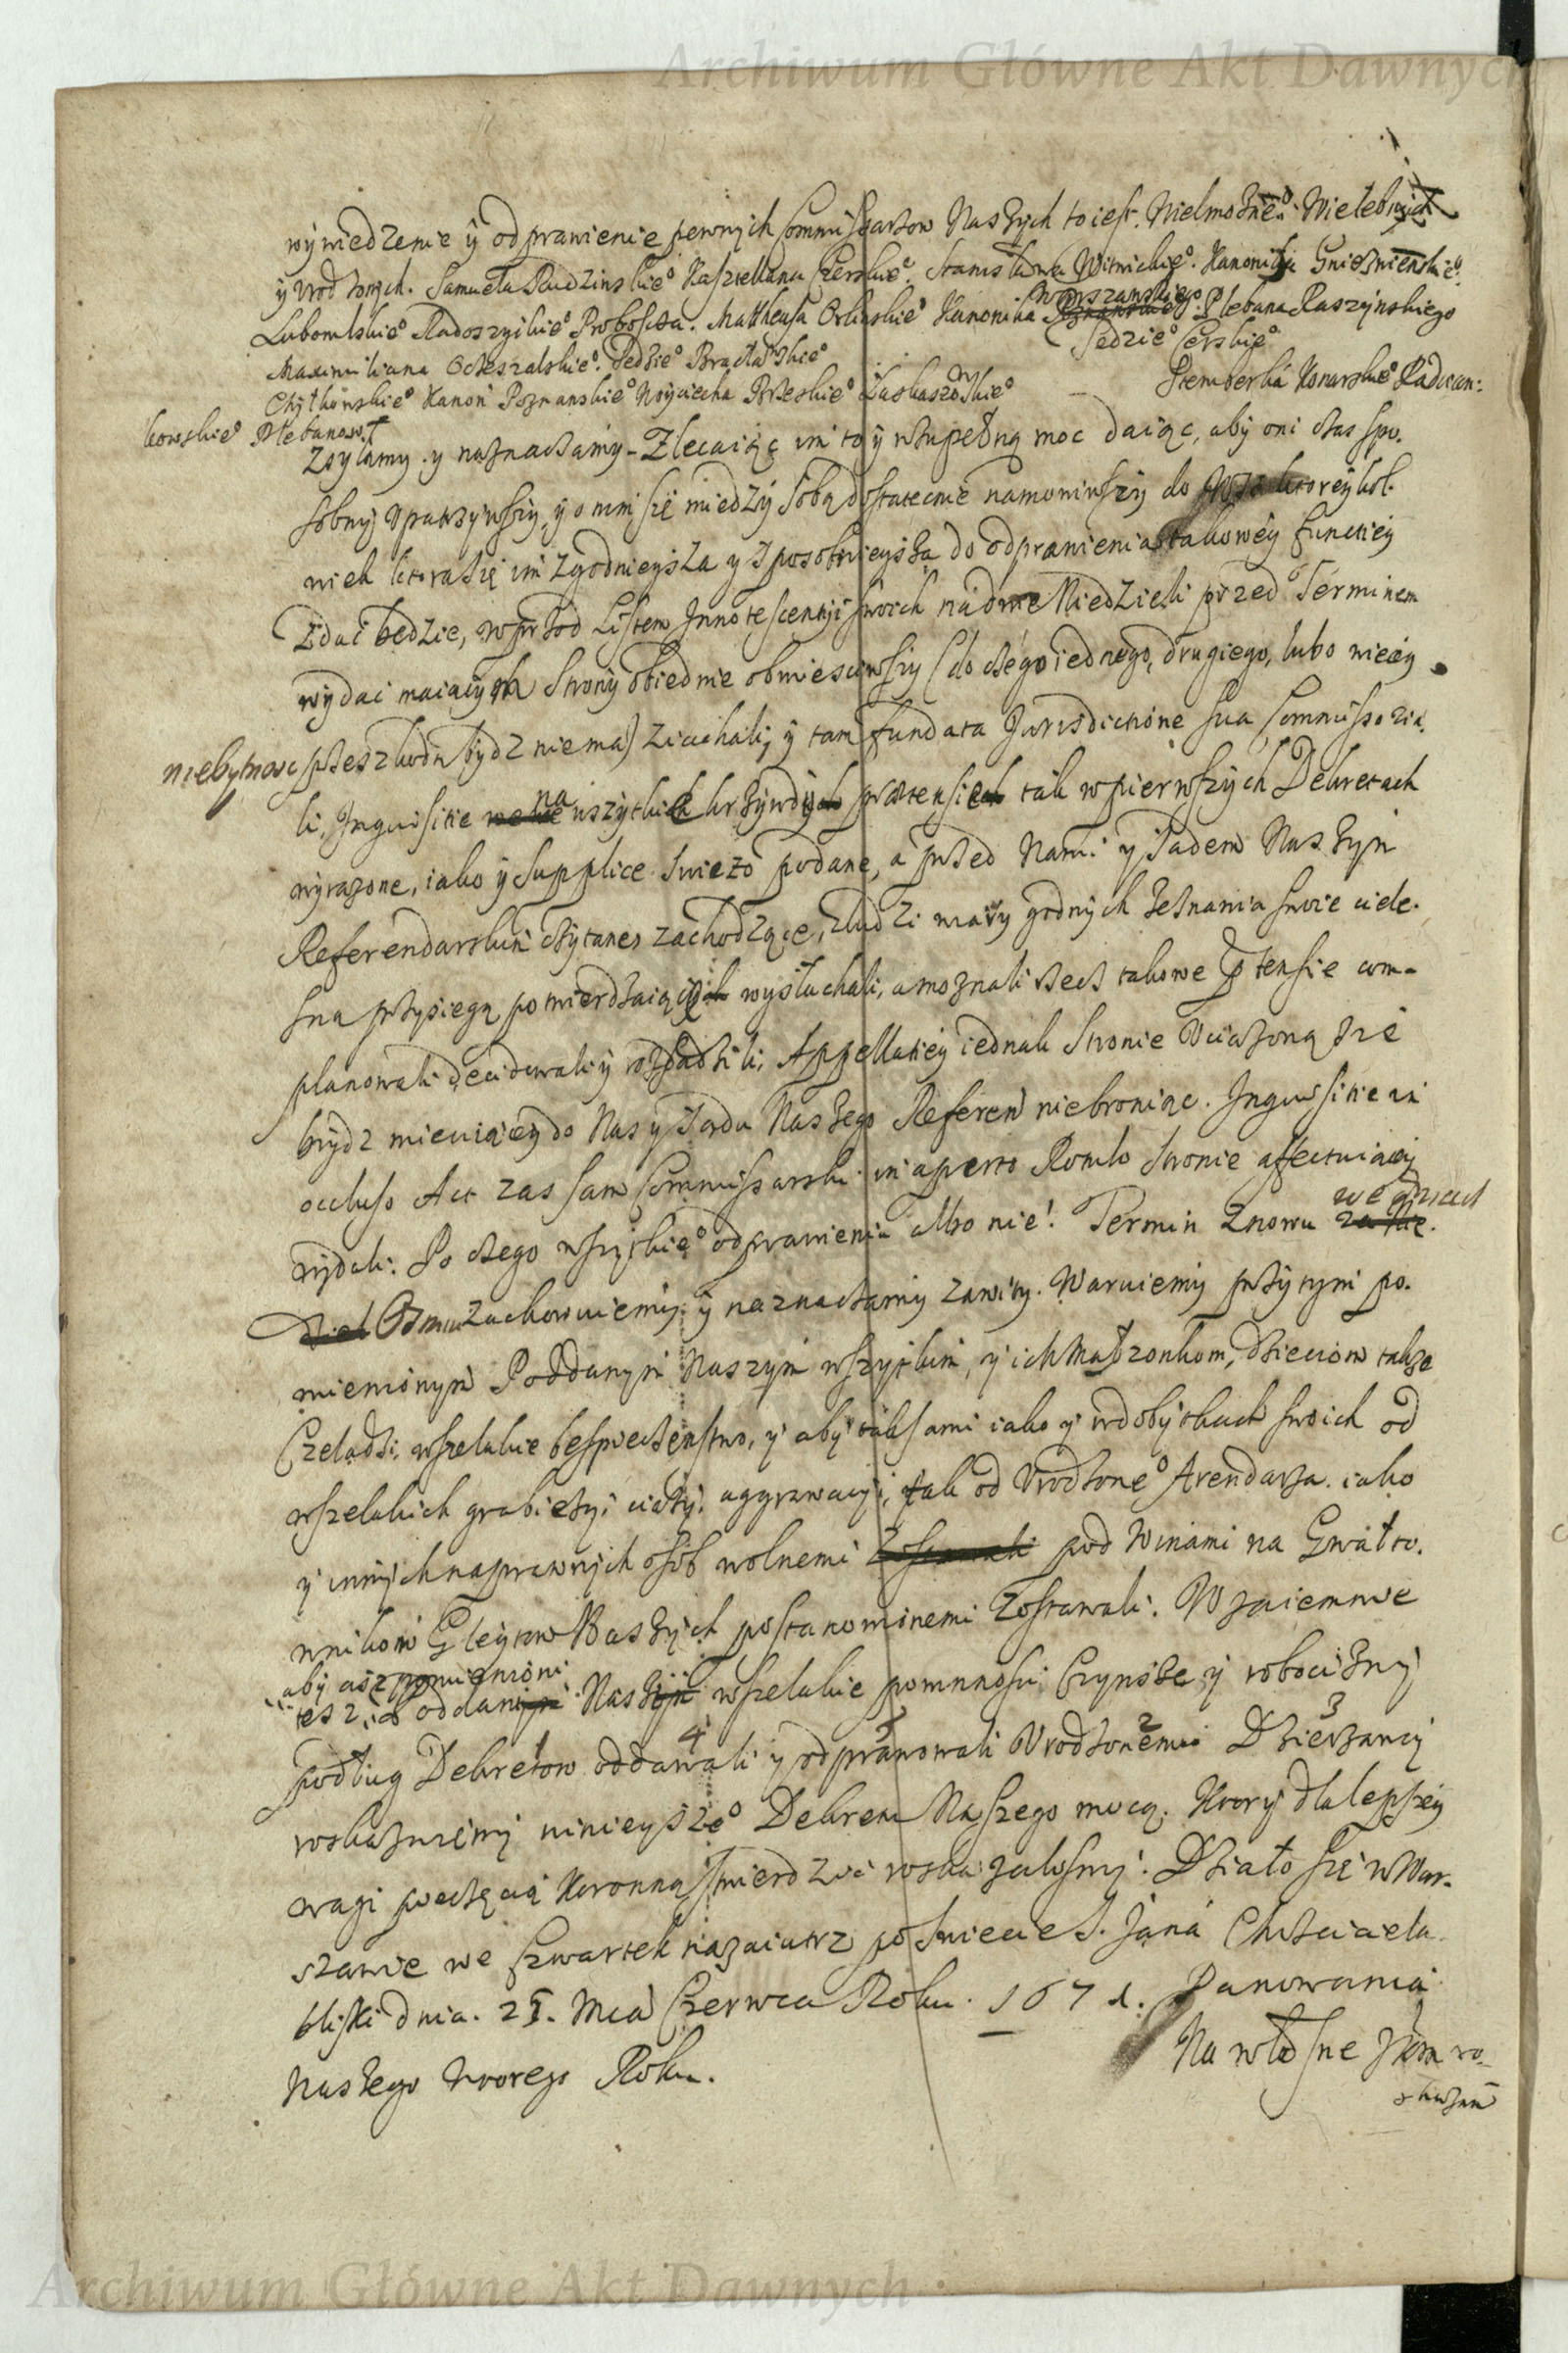 Archiwum Główne Akt Dawnych
wywiedzenie y odprawienie pewnych Commissarzow Naszych to iest. Wielmożne° Wielebnych
y Urodzonych. Samuela Rudzinskie° Kasztellana Czerskie°. Stanisława Witwickie°. Kanonika Gnieznienskie°.
Lubomlskie° Radoszyckie° Proboszcza. Mattheusa Orlinskie° Kanonika Warszawskiego Plebana Raszynskiego
Maximiliana Ocieszalskie°. Sędzie° Bracławskie° Sędzie° Czerskie°
Kanon Poznanskie° Woyciecha Brzeskie° Stemberka Konarskie° Radwan:
kowskie° Plebanow
Zsyłamy y naznaczamy Zlecaiąc im to y zupełną moc daiąc, aby oni czas spo.
sobny upatrzywszy, y o nim się między sobą dostatecznie namowiwszy do Wsi ktoreykol.
wiek ktora się im zgodnieysza y sposobnieysza do odprawienia takowey functiey
Zdac będzie, wprzod Listem Innotescentyi swoich na dwie Niedzieli przed Terminem
wydac maiącym Strony obiedwie obwiesciwszy (do czego iednego, drugiego, lubo więcey
niebytnosc przeszkodą bydz niema) ziachali, y tam fundata Jurisdictione sua Commissoria.
li, Inquisitie na wszytkie krzywdy praetensie tak w pierwszych Dekretach
wyrazone, iako y Supplice swiezo podane, a przed Nami y Sądem Naszym
Referendarskim zachodzące, z ludzi wiary godnych zeznania swoie ciele.
sną przysięgą potwierdzaiących wysłuchali, takowe ptensie com-
planowali decidowali y rozsądzili, Appellatiey iednak Stronie Uciązoną się
bydz mieniącey do Nas y Sądu Naszego Referen niebroniąc. Inquisitie in
occluso Act zas sam Commissarski in aperto Rotulo Stronie affectuiącey
wydali. Po czego wszytkie° odprawieniu albo nie! Termin Znowu
zachowuiemy y naznaczamy zawity. Waruiemy przytym po.
mienionym Poddanym Naszym wszytkim, y ich Małzonkom, dzieciom takze
Czeladzi, wszelakie bespieczenstwo, y aby tak sami iako y w dobytkach swoich od
wszelakich grabiezy, aggrawacyi, tak od Urodzone° Arendarza. iako
y innych naprawnych osob wolnemi pod Winami na Gwałto.
wnikow Gleytow Naszych postanowionemi Zostawali. Wzaiemnie
aby pomienioni
tesz Poddani Naszy wszelakie powinnosci Czynsze y robocizny
4 1 2 3
podług Dekretow oddawali y odprawowali Urodzonemu Dzierzawcy
roskazuiemy ninieysze° Dekretu Naszego mocą. Ktory dla lepszey
wagi pieczęcią Koronną stwierdzic roskazalismy. Działo się w War.
szawie we Czwartek nazaiutrz po Swiecie S. Jana Chrzciciela.
dnia. 25. Mca Czerwca Roku. 1671. Panowania
Naszego wtorego Roku.
Na własne
Archiwum Główne Akt Dawnych